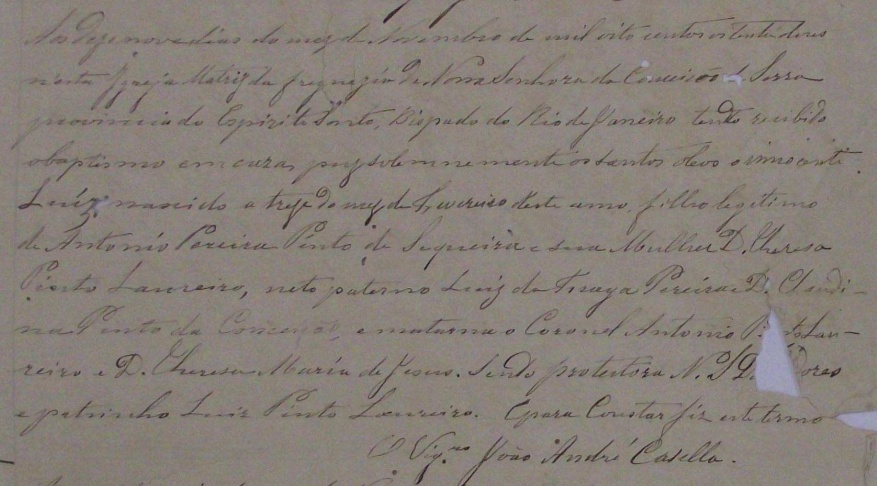 Aos dezenove dias do mez de Novembro de mil oito centos oitenta
nesta Igreja Matriz da freguezia de Nossa Senhora da Conceição da Serra
provincia do Espirito Santo, Bispado do Rio de Janeiro tendo recibido
o baptismo em caza, puz solemnemente os santos oleos o innocente
Luiz, nascido a treze do mez de Fevereiro deste anno, filho legitimo
de Antonio Pereira Pinto de Sequeira e sua Mulher D. Theresa
Pinto Laureiro, neto paterno Luiz da Pereira e D. Claudi-
na Pinto da Conceição, e materna o Coronel Antonio Pinto Lau-
reiro e D. Theresa Maria de Jesus. Sendo protectora N. S. D. Dores
e patrinho Luiz Pinto Laureiro. E para Constar fiz este termo
O Vigro João André Casella.